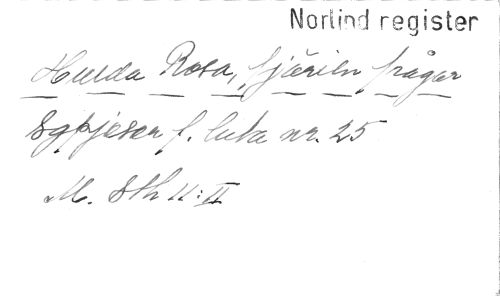 Norlind register
Hulda Rosa, fjäriln frågar
Sgpjeser f. luta nr. 25
M. Sth 11:II